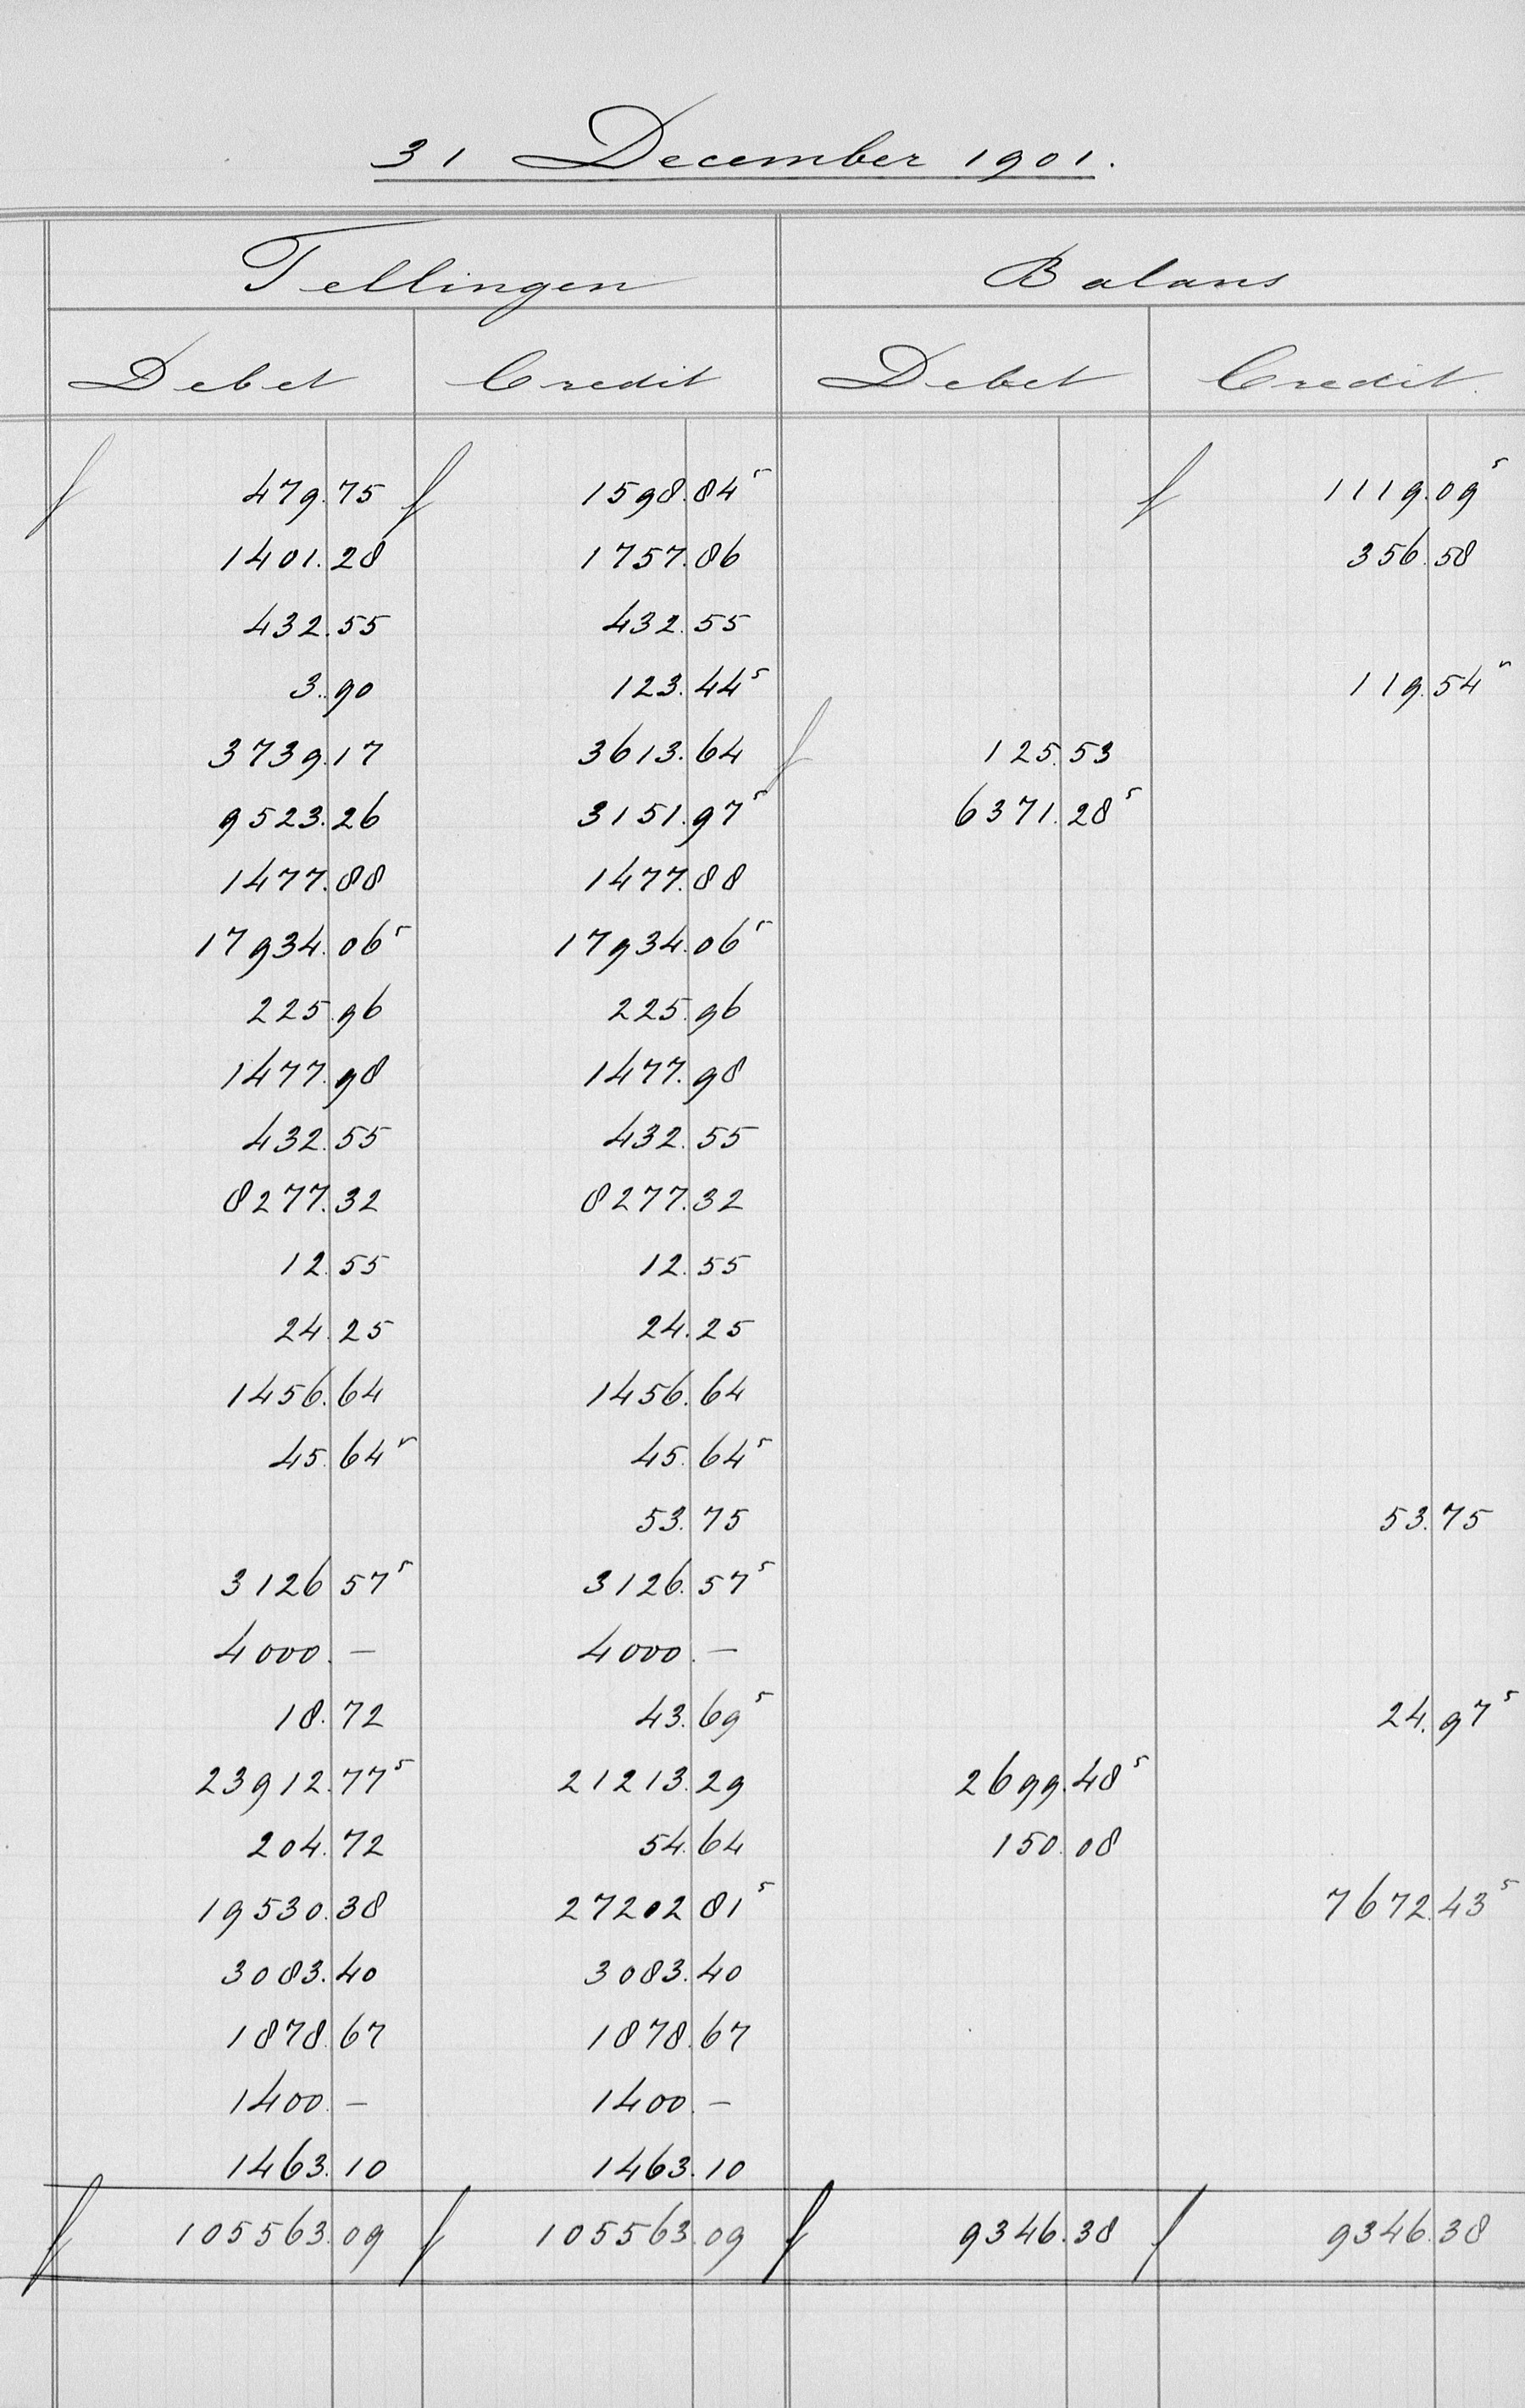 31 December 1901.
Tellingen Balans
Debet Credit Debet Credit.
f 479.75 f 1598.84⁵ f 1119.09⁵
1401.28 1757.86 356.58
432.55 432.55
3.90 123.44⁵ 119.54⁵
3739.17 3613.64 f 125.53
9523.26 3151.97⁵ 6371.28⁵
1477.88 1477.88
17934.06⁵ 17934.06⁵
225.96 225.96
1477.98 1477.98
432.55 432.55
8277.32 8277.32
12.55 12.55
24.25 24.25
1456.64 1456.64
45.64⁵ 45.64⁵
53.75 53.75
3126 57⁵ 3126.57⁵
4000.— 4000.—
18.72 43.69⁵ 24.97⁵
23912.77⁵ 21213.29 2699.48⁵
204.72 54.64 150.08
19530.38 27202 81⁵ 7672.43⁵
3083.40 3083.40
1878.67 1878.67
1400.— 1400.—
1463.10 1463.10
f 105563.09 f 105563.09 f 9346.38 f 9346.38